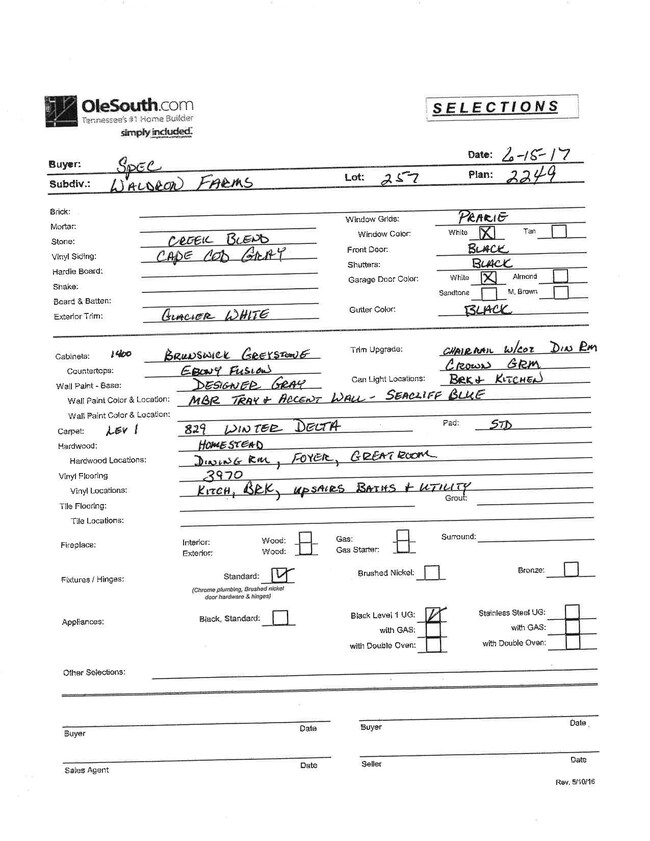 OleSouth.com
Tennessee's #1 Home Builder
simply included.
SELECTIONS
Buyer: SPEC Date: 6-15-17
Subdiv.: WALDRON FARMS Lot: 257 Plan: 2249
Brick: Window Grids: PRARIE
Mortar: Window Color: White X Tan
Stone: CREEK BLEND Front Door: BLACK
Vinyl Siding: CAPE COD GRAY Shutters: BLACK
Hardie Board: Garage Door Color: White X Almond
Shake: Sandtone M. Brown
Board & Batten:
Exterior Trim: GLACIER WHITE Gutter Color: BLACK
Cabinets: 1400 BRUNSWICK GREYSTONE Trim Upgrade: CHAIRRAIL W/COZ DIN RM
Countertops: EBONY FUSION CROWN GRM
Wall Paint - Base: DESIGNER GRAY Can Light Locations: BRK + KITCHEN
Wall Paint Color & Location: MBR TRAY + ACCENT WALL - SEACLIFF BLUE
Wall Paint Color & Location:
Carpet: LEV 1 829 WINTER DELTA Pad: STD
Hardwood: HOMESTEAD
Hardwood Locations: DINING RM, FOYER, GREAT ROOM
Vinyl Flooring 3970
Vinyl Locations: KITCH, BRK, UPSAIRS BATHS + UTILITY
Grout:
Tile Flooring:
Tile Locations:
Fireplace: Interior: Wood: Gas: Surround:
Exterior: Wood: Gas Starter:
Fixtures / Hinges: Standard: ✓ Brushed Nickel: Bronze:
(Chrome plumbing, Brushed nickel
door hardware & hinges)
Appliances: Black, Standard: Black Level 1 UG: ✓ Stainless Steel UG:
with GAS: with GAS:
with Double Oven: with Double Oven:
Other Selections:
Buyer Date Buyer Date
Sales Agent Date Seller Date
Rev. 5/10/16